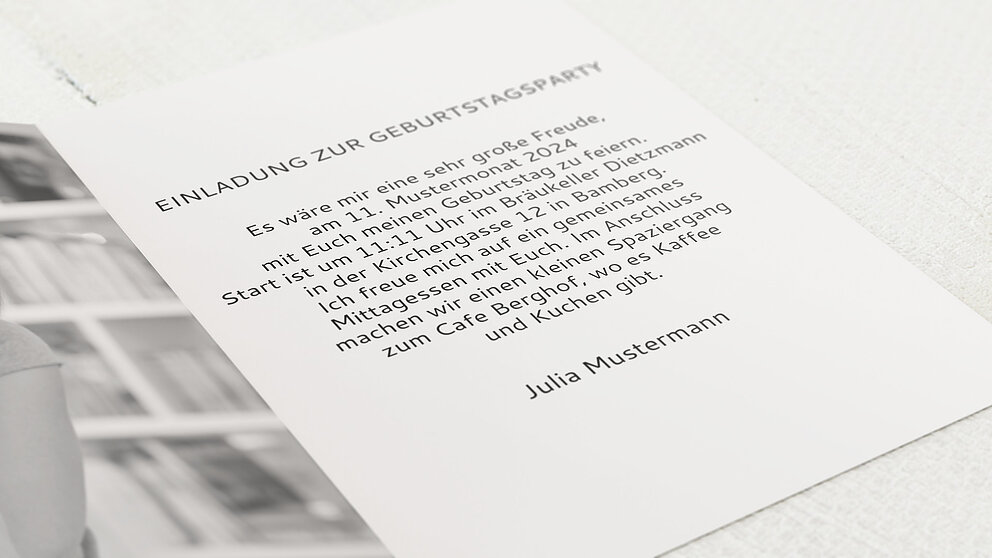 EINLADUNG ZUR GEBURTSTAGSPARTY
Es wäre mir eine sehr große Freude,
am 11. Mustermonat 2024
mit Euch meinen Geburtstag zu feiern.
Start ist um 11:11 Uhr im Bräukeller Dietzmann
in der Kirchengasse 12 in Bamberg.
Ich freue mich auf ein gemeinsames
Mittagessen mit Euch. Im Anschluss
machen wir einen kleinen Spaziergang
zum Cafe Berghof, wo es Kaffee
und Kuchen gibt.
Julia Mustermann